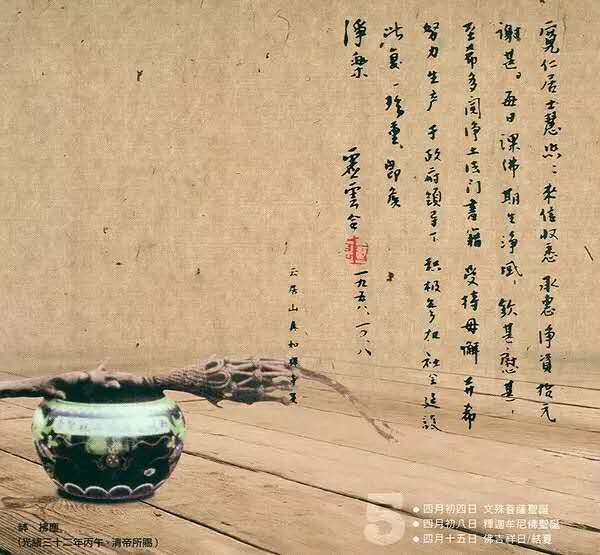 寬仁居士慧照:來信收悉 承惠淨資拾元
謝甚。每日課佛 期生淨 欽甚慰甚,
至希多阅净土法门書籍 受持毋懈 并希
努力生产 于政府領导下 积极参加社会建设
此复 珍重 即候
淨樂
虛雲合
云居山真如禪寺
鉢 拂塵
(光緒三十二年丙午,清帝所賜)
5
●四月初四日 文殊菩薩聖誕
●四月初八日 釋迦牟尼佛聖誕
●四月十五日 佛吉祥日/結夏